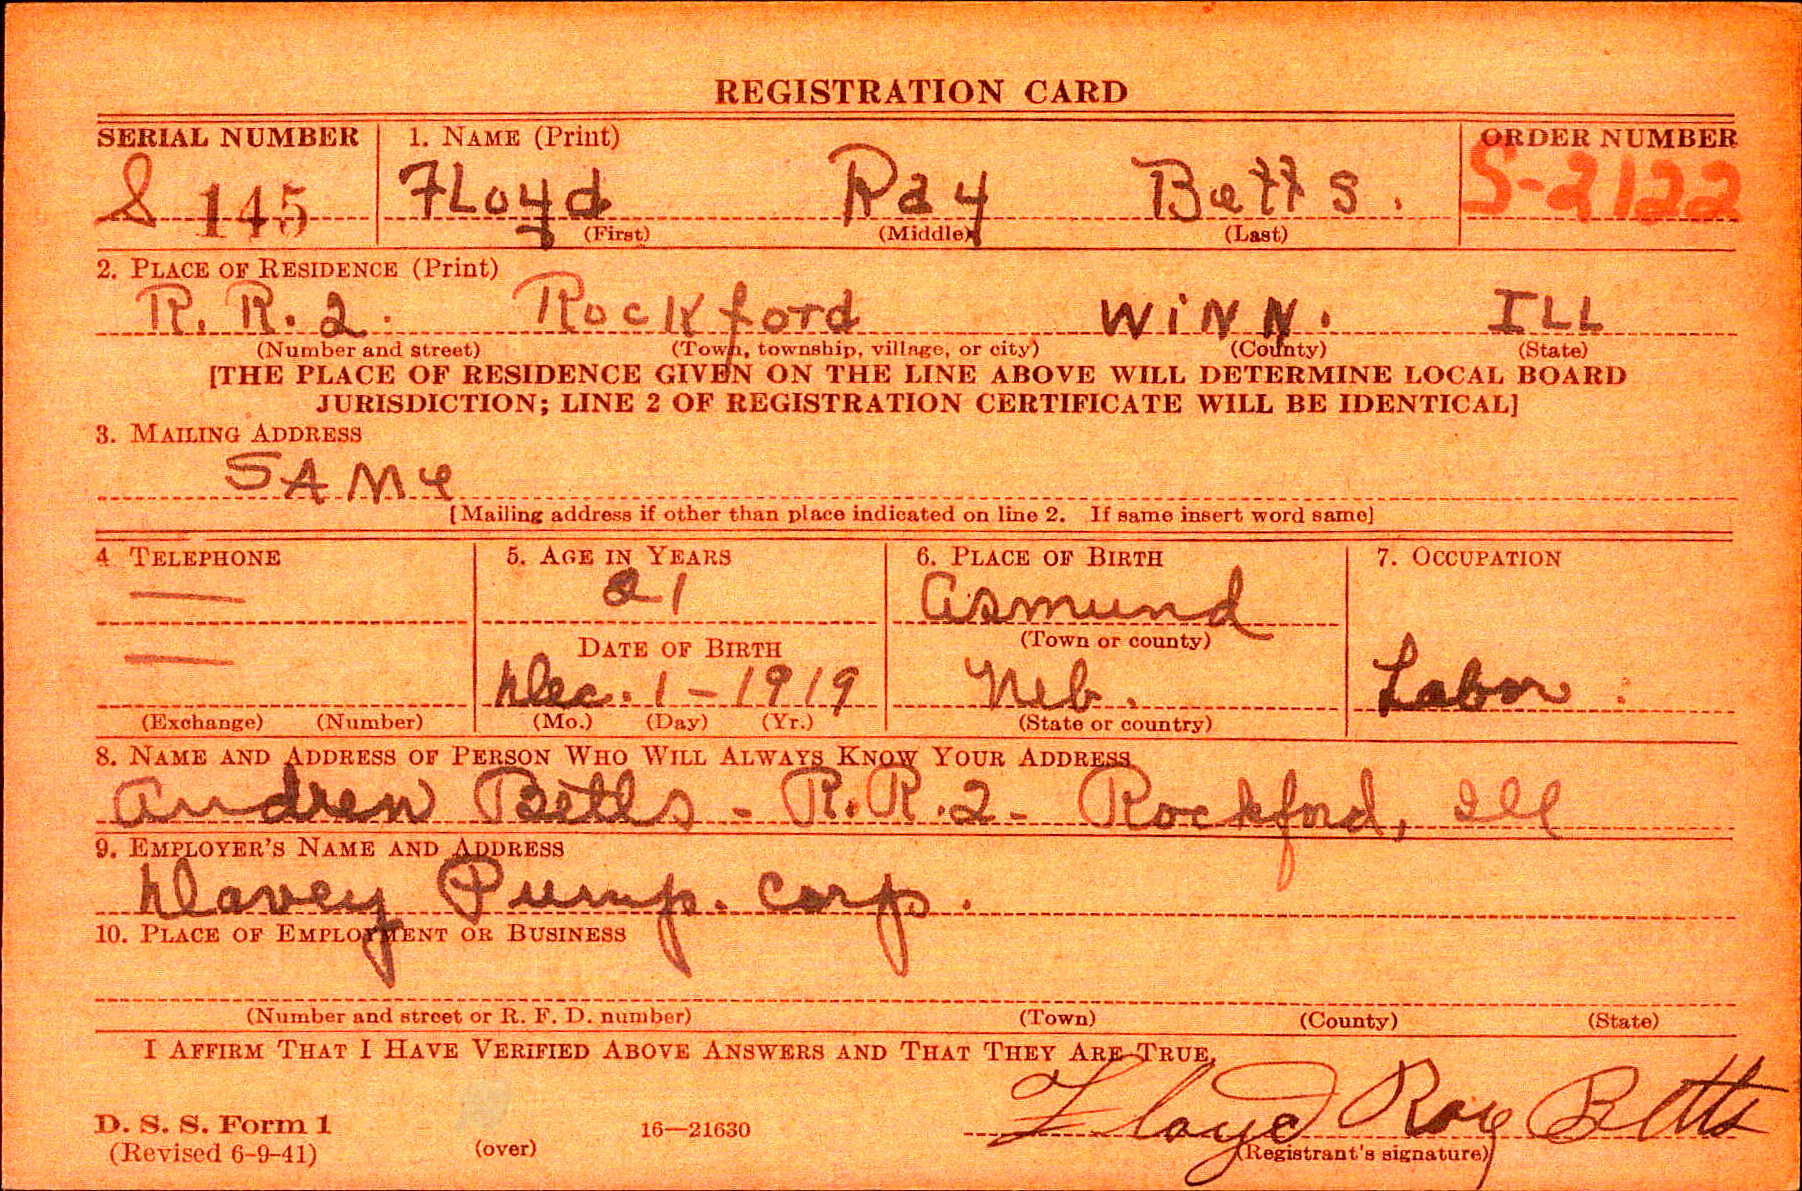 REGISTRATION CARD
SERIAL NUMBER 1. NAME (Print) ORDER NUMBER
S 145 FLoyd Ray Betts. S-2122
(First) (Middle) (Last)
2. PLACE OF RESIDENCE (Print)
R. R. 2. Rockford WiNN. ILL
(Number and street) (Town, township, village, or city) (County) (State)
[THE PLACE OF RESIDENCE GIVEN ON THE LINE ABOVE WILL DETERMINE LOCAL BOARD
JURISDICTION; LINE 2 OF REGISTRATION CERTIFICATE WILL BE IDENTICAL]
3. MAILING ADDRESS
SAMe
[Mailing address if other than place indicated on line 2. If same insert word same]
4 TELEPHONE 5. AGE IN YEARS 6. PLACE OF BIRTH 7. OCCUPATION
21 Asmund
DATE OF BIRTH (Town or county)
Dec. 1-1919 Neb. Labor
(Exchange) (Number) (Mo.) (Day) (Yr.) (State or country)
8. NAME AND ADDRESS OF PERSON WHO WILL ALWAYS KNOW YOUR ADDRESS
Andrew Betts - R.R.2- Rockford, Ill
9. EMPLOYER'S NAME AND ADDRESS
Davey Pump. Corp.
10. PLACE OF EMPLOYMENT OR BUSINESS
(Number and street or R. F. D. number) (Town) (County) (State)
I AFFIRM THAT I HAVE VERIFIED ABOVE ANSWERS AND THAT THEY ARE TRUE.
Floyd Ray Betts
D. S. S. Form 1
(Revised 6-9-41) (over) 16—21630 (Registrant's signature)